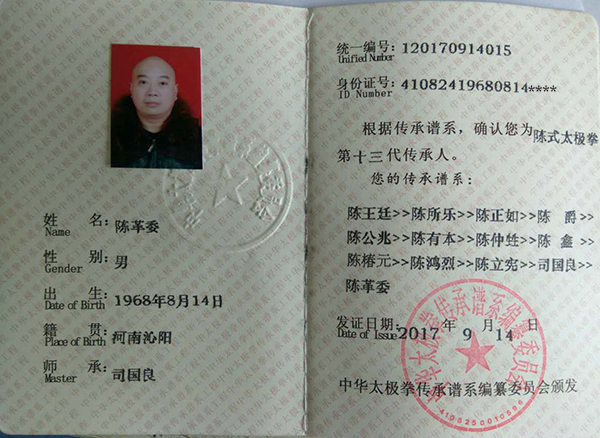 姓 名：陈革委
Name
性 别：男
Gender
出 生：1968年8月14日
Date of Birth
籍 贯：河南沁阳
Place of Birth
师 承：司国良
Master
统一编号：120170914015
Unified Number
身份证号：41082419680814****
ID Number
根据传承谱系，确认您为陈式太极拳
第十三代传承人。
您的传承谱系：
陈王廷>>陈所乐>>陈正如>>陈 爵>>
陈公兆>>陈有本>>陈仲甡>>陈 鑫>>
陈椿元>>陈鸿烈>>陈立宪>>司国良>>
陈革委
发证日期：2017年 9月 14日
Date of Issue
中华太极拳传承谱系编纂委员会颁发
中华太极拳传承谱系编纂委员会